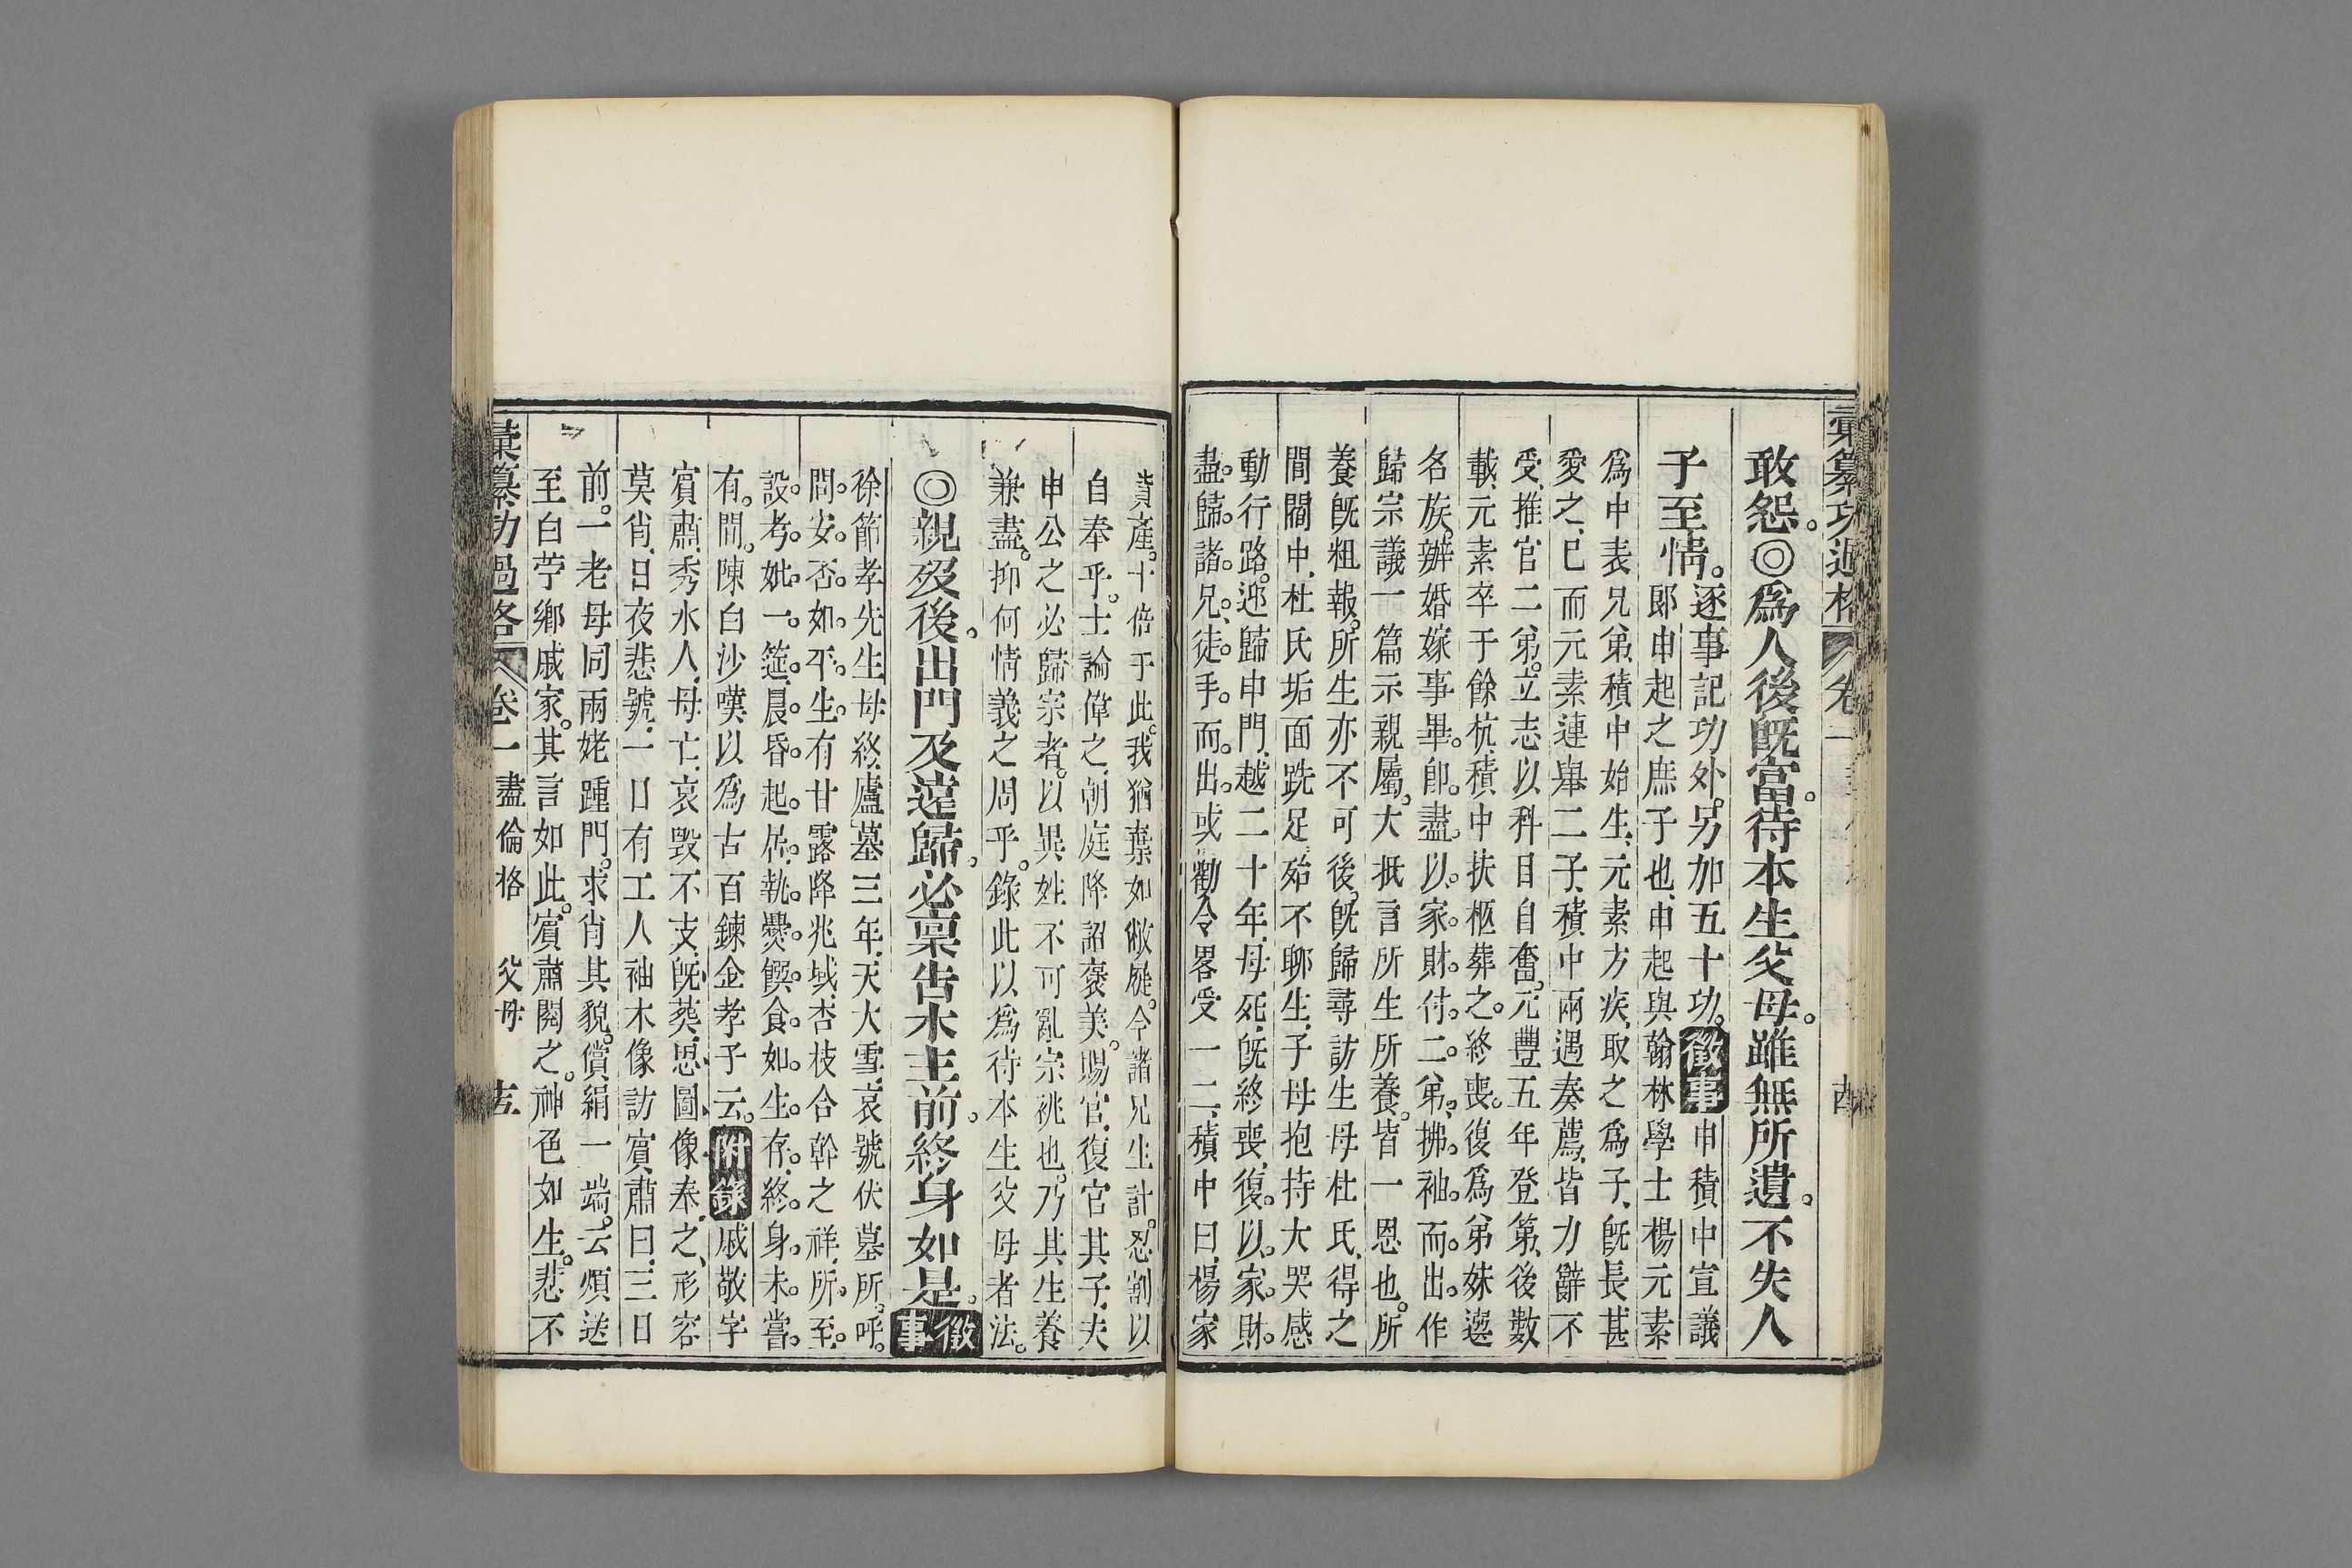 彙纂功過格 卷一
敢怨。◎爲人後旣富。待本生父母。雖無所遺。不失人
子至情。逐事記功外。另加五十功。徵事 申積中宣議
郞申起之庶子也、申起與翰林學士楊元素
爲中表兄弟、積中始生、元素方疾、取之爲子、旣長甚
愛之、已而元素連舉二子、積中兩遇奏薦、皆力辭不
受、推官二弟。立志以科目自奮。元豐五年登第、後數
載、元素卒于餘杭、積中扶柩葬之。終喪。復爲弟妹選
名族。辦婚嫁事畢。卽。盡。以。家。財。付。二。弟。拂。袖。而。出。作
歸宗議一篇示親屬。大抵言所生所養。皆一恩也。所
養旣粗報。所生亦不可後。旣歸尋訪生母杜氏、得之
閭閻中、杜氏垢面跣足、殆不聊生、子母抱持大哭感
動行路。迎歸申門、越二十年、母死、旣終喪、復。以。家。財。
盡。歸。諸。兄。徒。手。而。出。或勸令畧受一二、積中曰、楊家
貲產。十倍于此。我猶棄如敝屣。今諸兄生計。忍割以
自奉乎。士論偉之、朝庭降詔褒美。賜官、復官其子、夫
申公之必歸宗者。以異姓不可亂宗祧也。乃其生養
兼盡。抑何情義之周乎。錄此以爲待本生父母者法。
◎親歿後。出門及遠歸。必稟告木主前。終身如是。徵事
徐節孝先生母終、廬墓三年、天大雪、哀號伏墓所。呼。
問。安。否。如。平。生。有甘露降兆域、杏枝合幹之祥、所。至。
設。考。妣。一。筵。晨。昏。起。居。執。爨。饌。食。如。生。存。終。身。未。嘗。
有。間。陳白沙嘆以爲古百鍊金孝子云。附錄 戚敬字
賓肅、秀水人、母亡、哀毀不支、旣葬、思圖像奉之、形容
莫肖、日夜悲號、一日有工人袖木像訪賓肅曰、三日
前。一老母同兩姥踵門。求肖其貌。償絹一端。云煩送
至白苧鄉戚家。其言如此。賓肅閱之。神色如生。悲不
彙纂功過格 卷一 盡倫格 父母